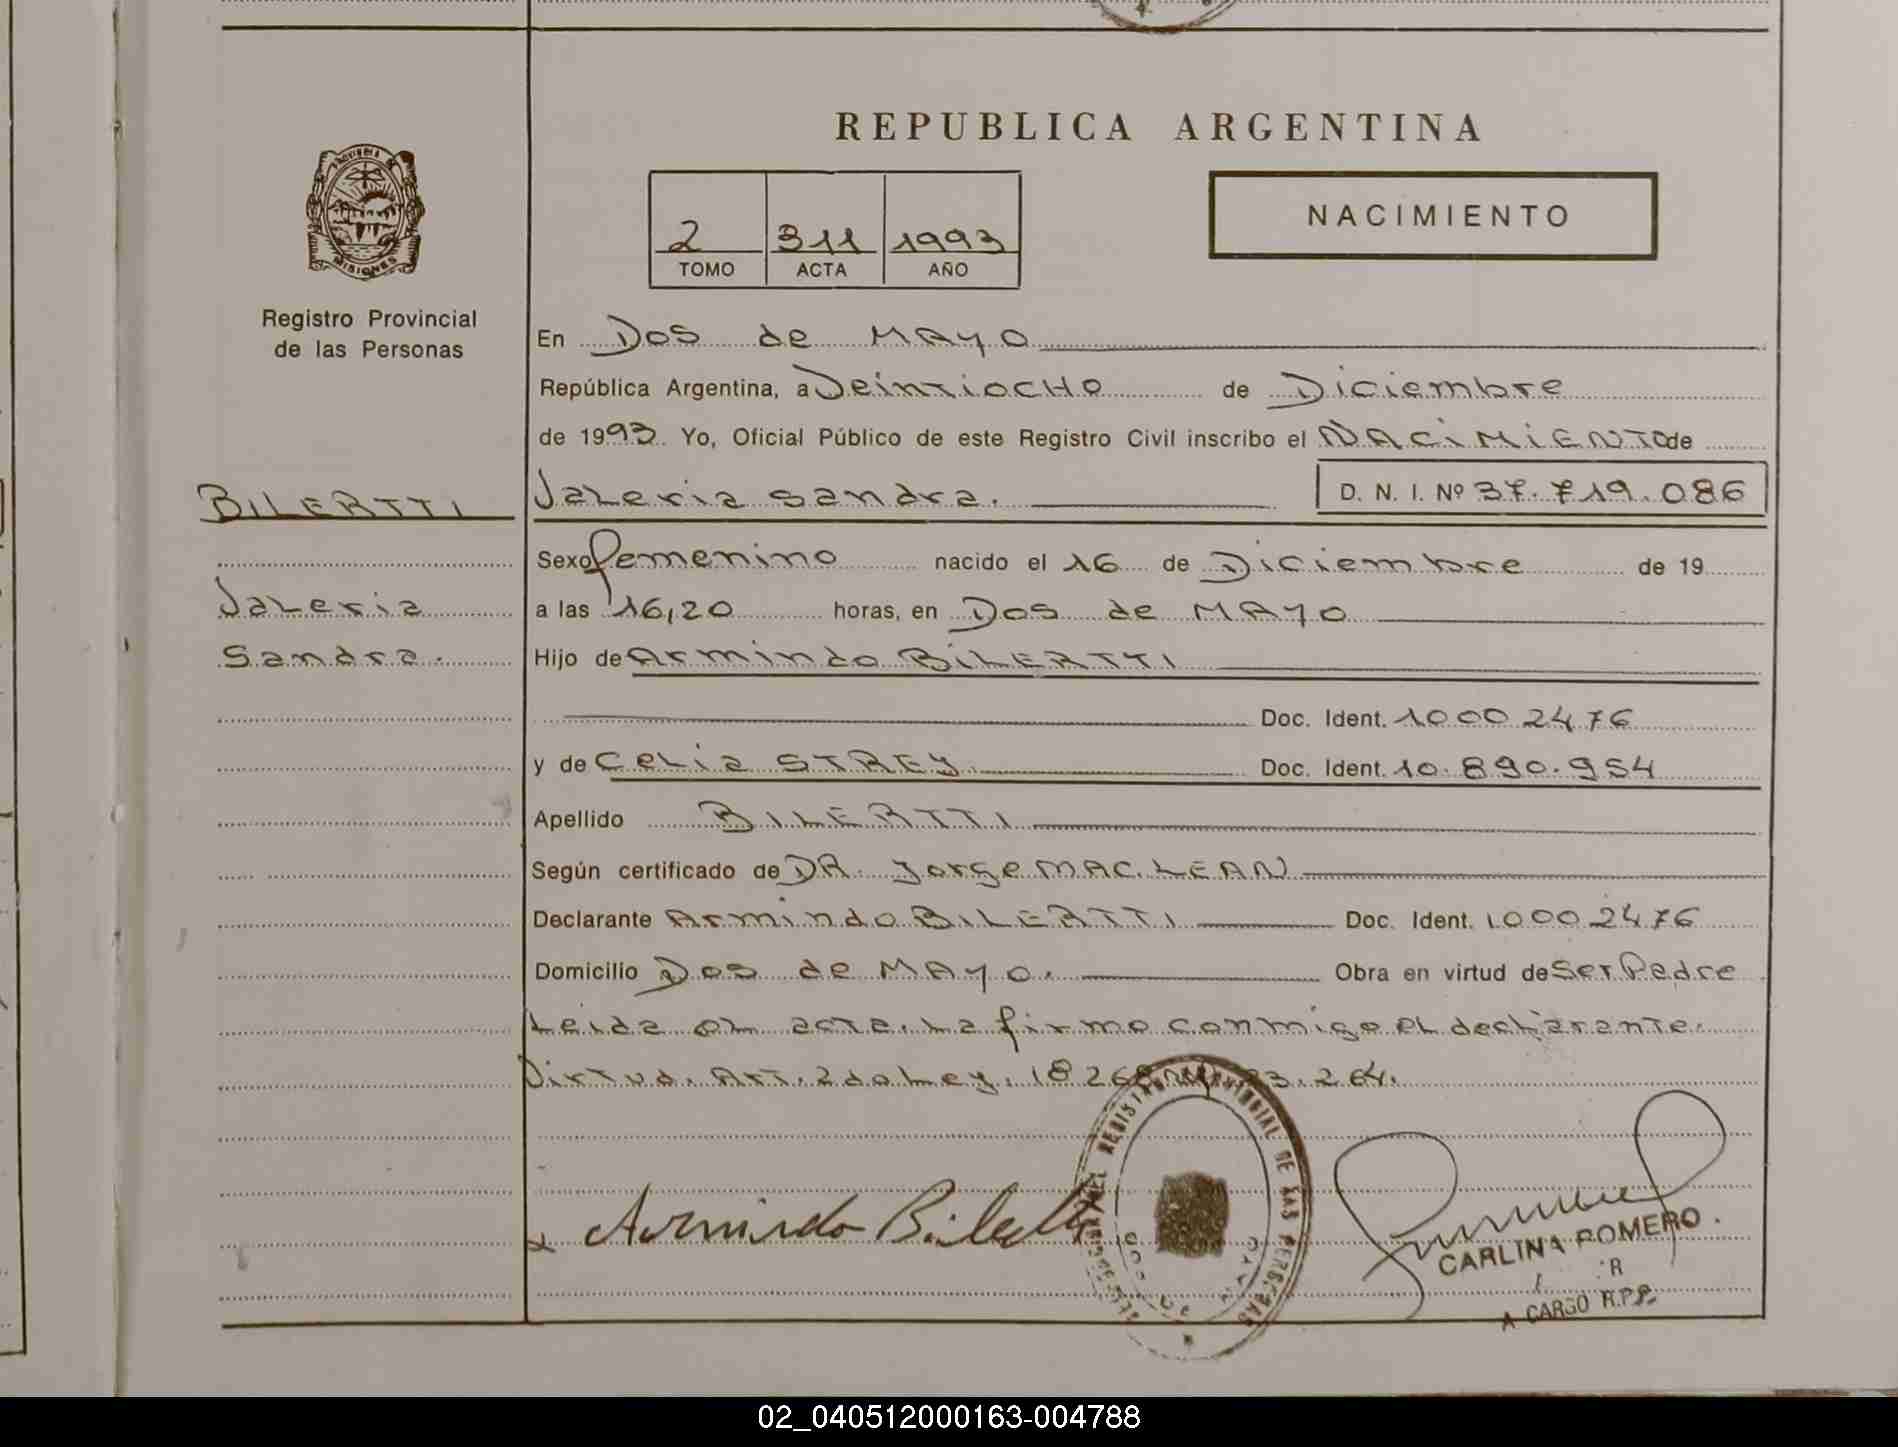 REPUBLICA ARGENTINA
PROVINCIA DE
MISIONES
Registro Provincial
de las Personas
2 311 1993
TOMO ACTA AÑO
NACIMIENTO
En Dos de MAYO
República Argentina, a Veintiocho de Diciembre
de 1993. Yo, Oficial Público de este Registro Civil inscribo el NACIMIENTO de
BILERTTI
Valeria Sandra. D. N. I. Nº 37.719.086
Sexo femenino nacido el 16 de Diciembre de 19
Valeria
a las 16,20 horas, en Dos de MAYO
Sandra.
Hijo de Armindo BILERTTI
Doc. Ident. 10002476
y de Celia STREY Doc. Ident. 10.890.954
Apellido BILERTTI
Según certificado de DR. Jorge MAC.LEAN
Declarante Armindo BILERTTI Doc. Ident. 10002476
Domicilio Dos de MAYO. Obra en virtud de Ser Padre
Leida el acta. La firma conmigo el declarante.
Virtud. Art. 2do Ley. 18 23.264.
x Armindo Biletti
REGISTRO PROVINCIAL DE LAS PERSONAS
DOS DE MAYO
CARLINA ROMERO.
A CARGO R.P.P.
02_040512000163-004788